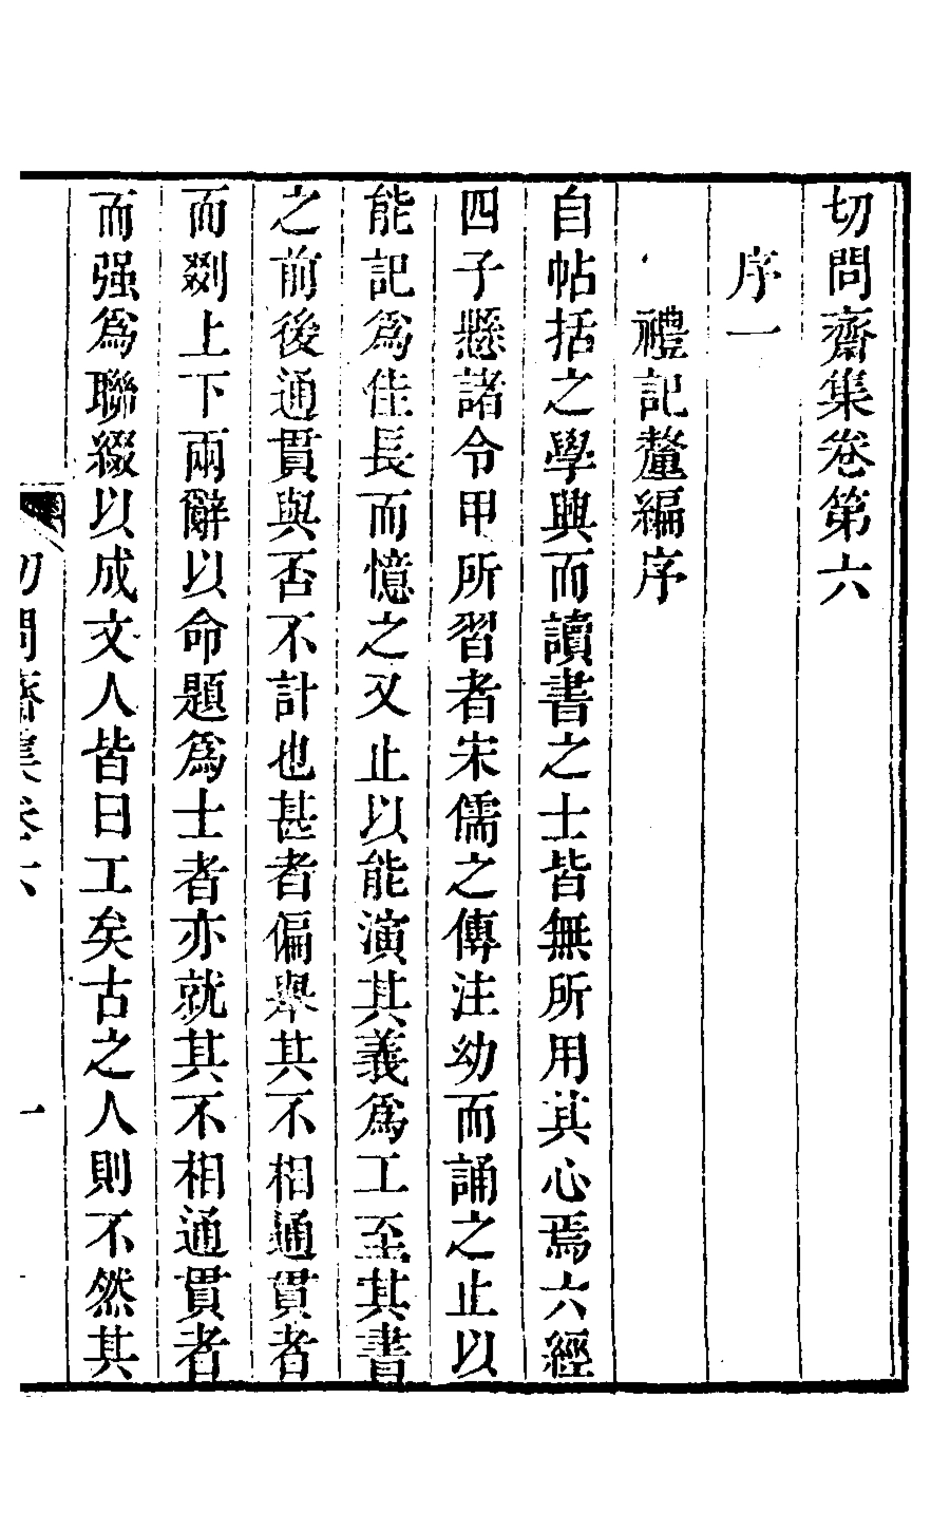 切問齋集卷第六
序一
禮記釐編序
自帖括之學興而讀書之士皆無所用其心焉六經
四子懸諸令甲所習者宋儒之傳注幼而誦之止以
能記爲佳長而憶之又止以能演其義爲工至其書
之前後通貫與否不計也甚者偏舉其不相通貫者
而剟上下兩辭以命題爲士者亦就其不相通貫者
而强爲聯綴以成文人皆曰工矣古之人則不然其
切問齋集卷六
一